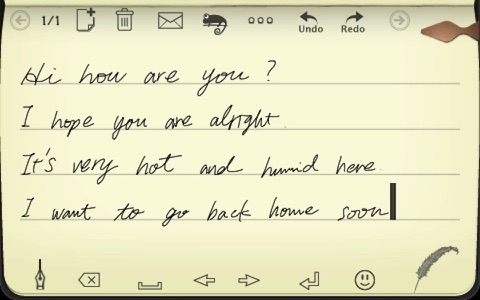 1/1
Undo Redo
Hi how are you ?
I hope you are alright.
It's very hot and humid here.
I want to go back home soon